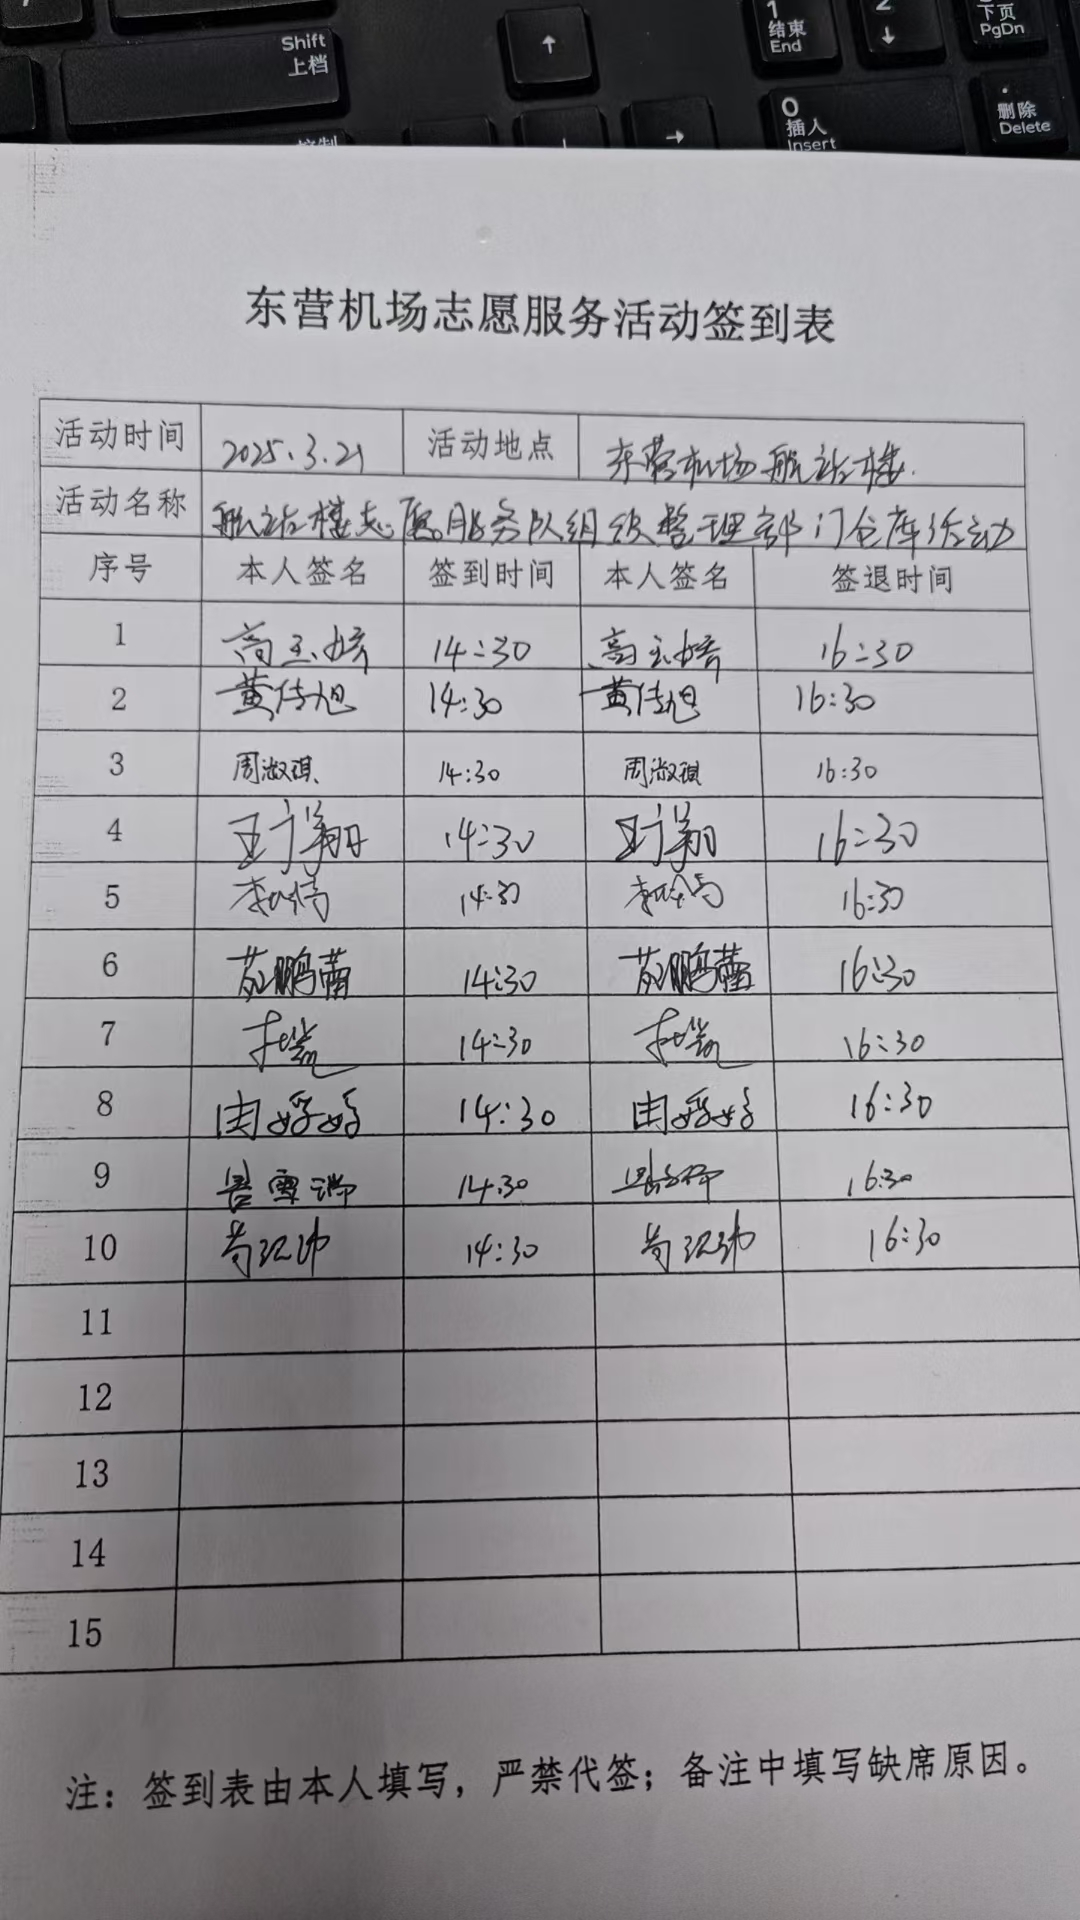 Shift
上档
↑
1
结束
End
2
↓
下页
PgDn
→
0
插入
Insert
.
删除
Delete
东营机场志愿服务活动签到表
活动时间 2025.3.21 活动地点 东营机场航站楼.
活动名称 航站楼志愿服务队组织整理部门仓库活动
序号 本人签名 签到时间 本人签名 签退时间
1 高玉婷 14:30 高玉婷 16:30
2 黄传旭 14:30 黄传旭 16:30
3 周淑琪 14:30 周淑琪 16:30
4 王广翔 14:30 王广翔 16:30
5 14:30 16:30
6 苏鹏蕾 14:30 苏鹏蕾 16:30
7 14:30 16:30
8 由婷婷 14:30 由婷婷 16:30
9 14:30 16:30
10 14:30 16:30
11
12
13
14
15
注：签到表由本人填写，严禁代签；备注中填写缺席原因。